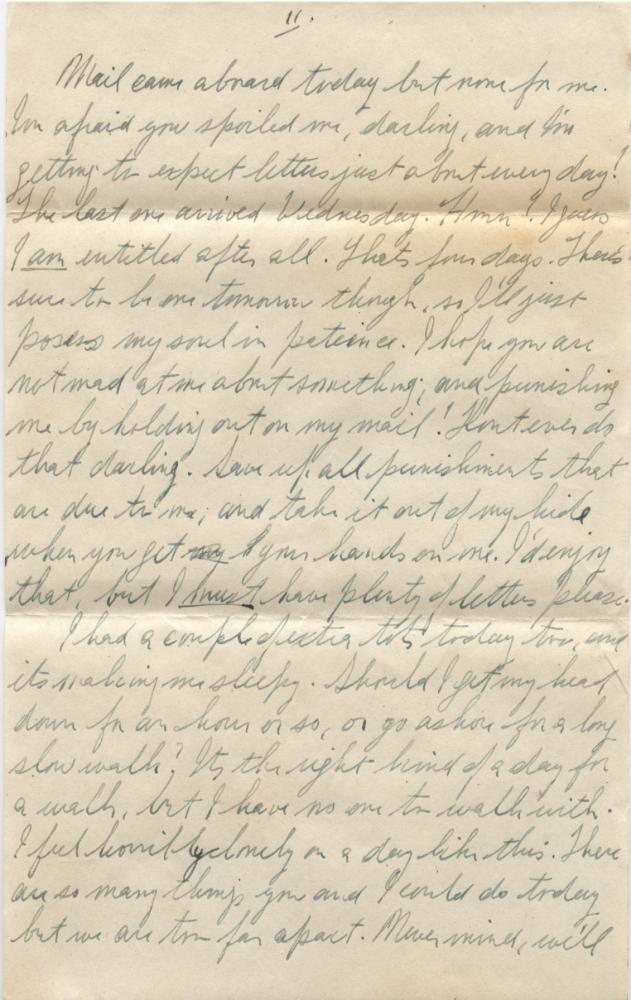 11.
Mail came aboard today but none for me.
I'm afraid you spoiled me, darling, and I'm
getting to expect letters just about every day!
The last one arrived Wednesday. Hmm! I guess
I am entitled after all. Thats four days. There's
sure to be one tomorrow though, so I'll just
posess my soul in patience. I hope you are
not mad at me about something, and punishing
me by holding out on my mail! Dont ever do
that darling. Save up all punishments that
are due to me, and take it out of my hide
when you get my your hands on me. I'd enjoy
that, but I must have plenty of letters please.
I had a couple of extra tots today too, and
its making me sleepy. Should I get my head
down for an hour or so, or go ashore for a long
slow walk? Its the right kind of a day for
a walk, but I have no one to walk with.
I feel horribly lonely on a day like this. There
are so many things you and I could do today
but we are too far apart. Never mind, we'll